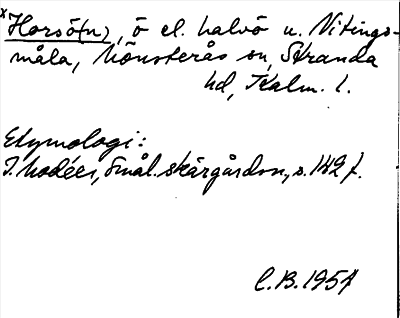 x Horsö(n), ö el. halvö u. Vitings-
måla, Mönsterås sn, Stranda
hd, Kalm. l.
Etymologi:
I. Modéer, Smål. skärgårdsn., s. 142 f.
C.B. 1957